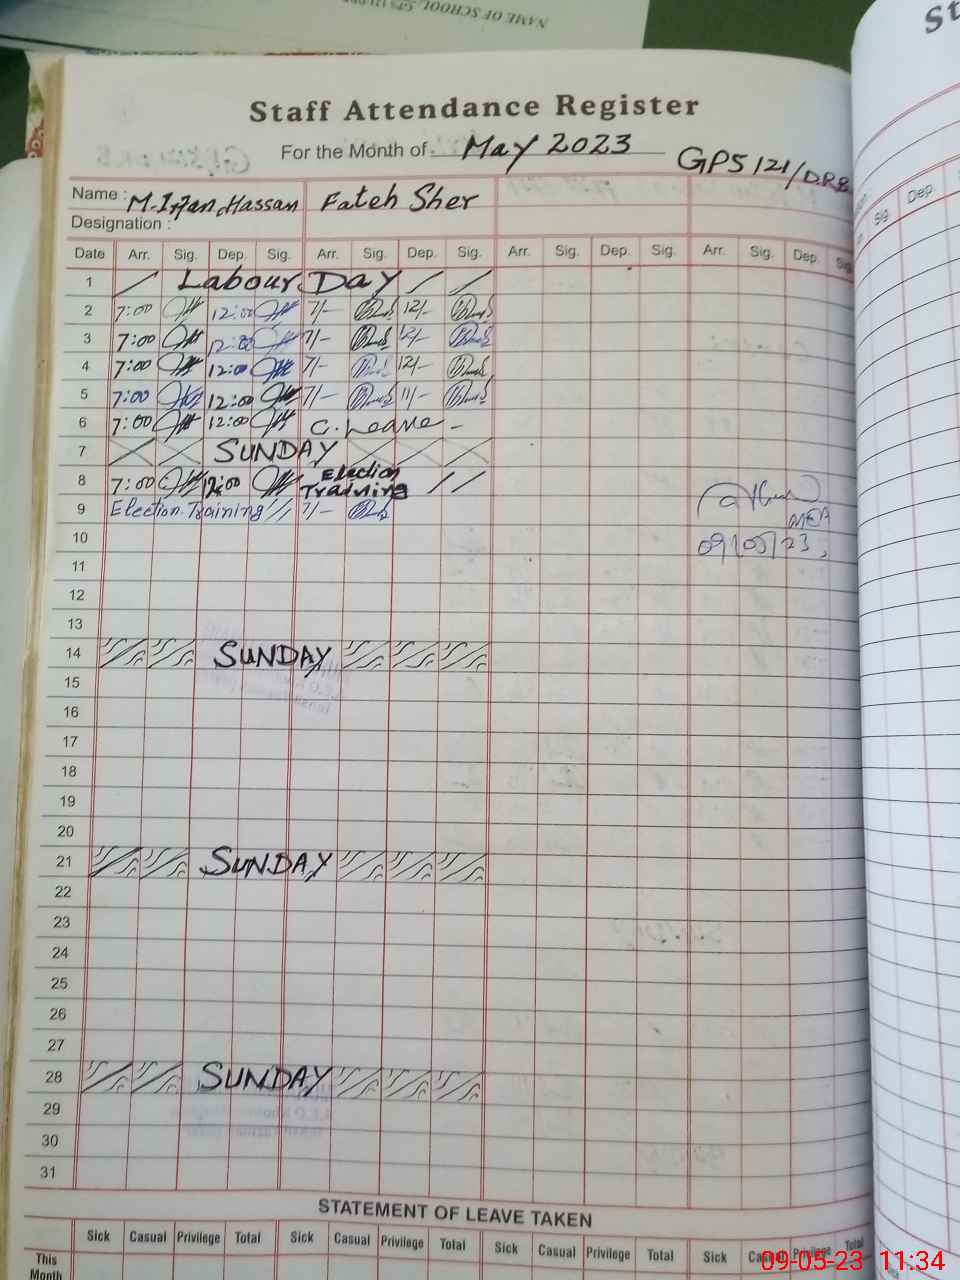 NAME OF SCHOOL, GPS 121
St
Staff Attendance Register
For the Month of May 2023 GPS 121/D.R.B
Name : M.Irfan Hassan Fateh Sher
Designation :
Date Arr. Sig. Dep. Sig. Arr. Sig. Dep. Sig. Arr. Sig. Dep. Sig. Arr. Sig. Dep. Sig
Sig. Dep.
1 Labour Day
2 7:00 12:00 7/- 12/-
3 7:00 12:00 7/- 12/-
4 7:00 12:00 7/- 12/-
5 7:00 12:00 7/- 11/-
6 7:00 12:00 C. Leave -
7 SUNDAY
8 7:00 12:00 Election Training
9 Election Training 7/-
MEA
10 09/05/23
11
12
13
14 SUNDAY
15
16
17
18
19
20
21 SUNDAY
22
23
24
25
26
27
28 SUNDAY
29
30
31
STATEMENT OF LEAVE TAKEN
Sick Casual Privilege Total Sick Casual Privilege Total Sick Casual Privilege Total Sick Casual Privilege Total
This Month
09-05-23 11:34